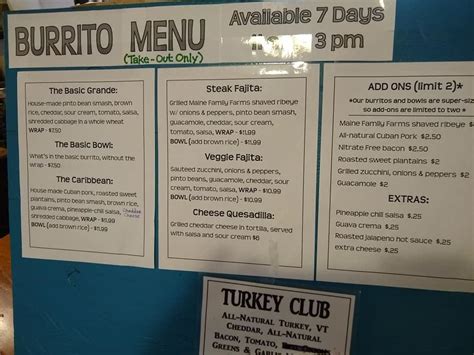 BURRITO MENU
(Take-Out Only)
Available 7 Days
3 pm
The Basic Grande:
House-made pinto bean smash, brown
rice, cheddar, sour cream, tomato, salsa,
shredded cabbage in a whole wheat
WRAP - $7.50
The Basic Bowl:
What's in the basic burrito, without the
wrap - $7.50
The Caribbean:
House made Cuban pork, roasted sweet
plantains, pinto bean smash, brown rice,
guava crema, pineapple-chili salsa,
shredded cabbage, WRAP - $11.99
BOWL (add brown rice) - $11.99
Steak Fajita:
Grilled Maine Family Farms shaved ribeye
w/ onions & peppers, pinto bean smash,
guacamole, cheddar, sour cream,
tomato, salsa, WRAP - $11.99
BOWL (add brown rice) - $11.99
Veggie Fajita:
Sauteed zucchini, onions & peppers,
pinto beans, guacamole, cheddar, sour
cream, tomato, salsa, WRAP - $11.99
BOWL (add brown rice) - $11.99
Cheese Quesadilla:
Grilled cheddar cheese in tortilla, served
with salsa and sour cream $6
ADD ONS (limit 2)*
*Our burritos and bowls are super-siz
so add-ons are limited to two *
Maine Family Farms shaved ribeye
All-natural Cuban Pork $2.50
Nitrate Free bacon $2.50
Roasted sweet plantains $2
Grilled zucchini, onions & peppers
Guacamole $2
EXTRAS:
Pineapple chili salsa $.25
Guava crema $.25
Roasted jalapeno hot sauce $.25
extra cheese $.25
TURKEY CLUB
All-Natural Turkey, VT
Cheddar, All-Natural
Bacon, Tomato,
Greens &